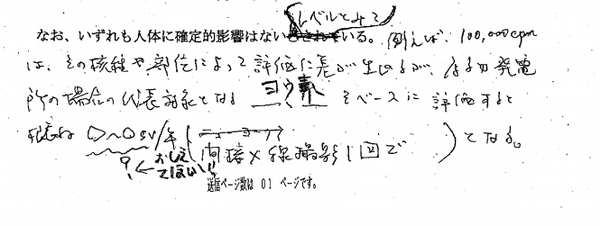 レベルとみて
なお、いずれも人体に確定的影響はないとされている。例えば、100,000cpm
は、その核種や部位によって評価に差が生じるが、原子力発電
所の場合の代表核種となる ヨウ素 をベースに評価すると
概ね ○~○SV/年 (間接X線撮影1回で )となる。
? ←おしえてほしい!!
送信ページ数は 01 ページです。